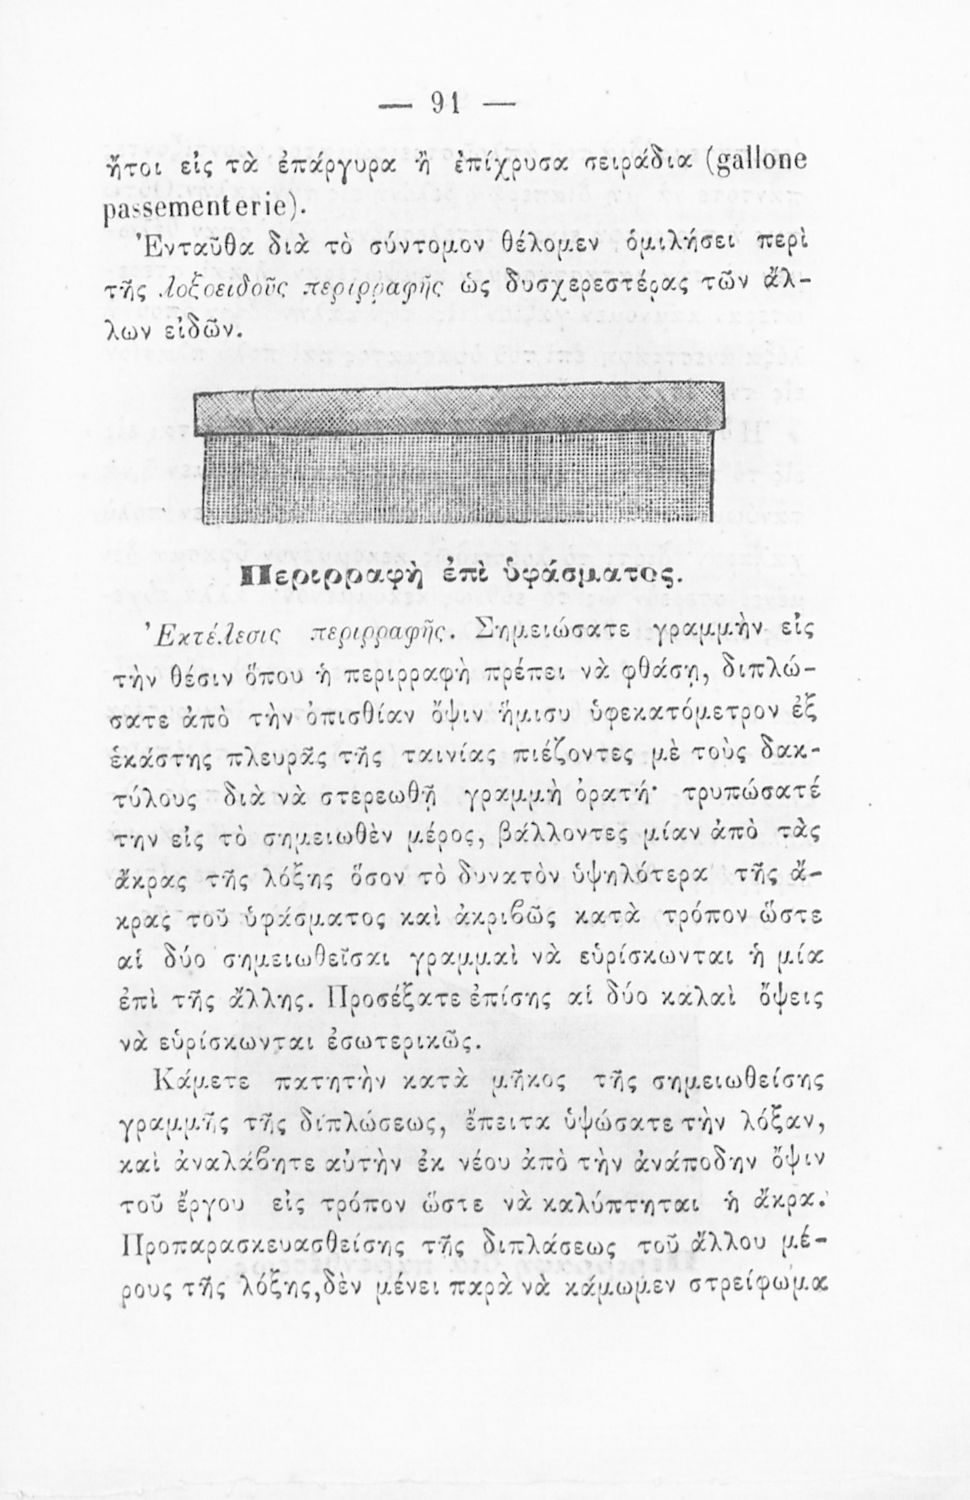 — 91 —
ἤτοι εἰς τὰ ἐπάργυρα ἢ ἐπίχρυσα σειράδια (gallone
passementerie).
Ἐνταῦθα διὰ τὸ σύντομον θέλομεν ὁμιλήσει περὶ
τῆς λοξοειδοῦς περιρραφῆς ὡς δυσχερεστέρας τῶν ἄλ-
λων εἰδῶν.
Περιρραφὴ ἐπὶ ὑφάσματος.
Ἐκτέλεσις περιρραφῆς. Σημειώσατε γραμμὴν εἰς
τὴν θέσιν ὅπου ἡ περιρραφὴ πρέπει νὰ φθάσῃ, διπλώ-
σατε ἀπὸ τὴν ὀπισθίαν ὄψιν ἥμισυ ὑφεκατόμετρον ἐξ
ἑκάστης πλευρᾶς τῆς ταινίας πιέζοντες μὲ τοὺς δακ-
τύλους διὰ νὰ στερεωθῇ γραμμὴ ὁρατή· τρυπώσατέ
την εἰς τὸ σημειωθὲν μέρος, βάλλοντες μίαν ἀπὸ τὰς
ἄκρας τῆς λόξης ὅσον τὸ δυνατὸν ὑψηλότερα τῆς ἄ-
κρας τοῦ ὑφάσματος καὶ ἀκριβῶς κατὰ τρόπον ὥστε
αἱ δύο σημειωθεῖσαι γραμμαὶ νὰ εὑρίσκωνται ἡ μία
ἐπὶ τῆς ἄλλης. Προσέξατε ἐπίσης αἱ δύο καλαὶ ὄψεις
νὰ εὑρίσκωνται ἐσωτερικῶς.
Κάμετε πατητὴν κατὰ μῆκος τῆς σημειωθείσης
γραμμῆς τῆς διπλώσεως, ἔπειτα ὑψώσατε τὴν λόξαν,
καὶ ἀναλάβητε αὐτὴν ἐκ νέου ἀπὸ τὴν ἀνάποδην ὄψιν
τοῦ ἔργου εἰς τρόπον ὥστε νὰ καλύπτηται ἡ ἄκρα.
Προπαρασκευασθείσης τῆς διπλάσεως τοῦ ἄλλου μέ-
ρους τῆς λόξης, δὲν μένει παρὰ νὰ κάμωμεν στρείφωμα